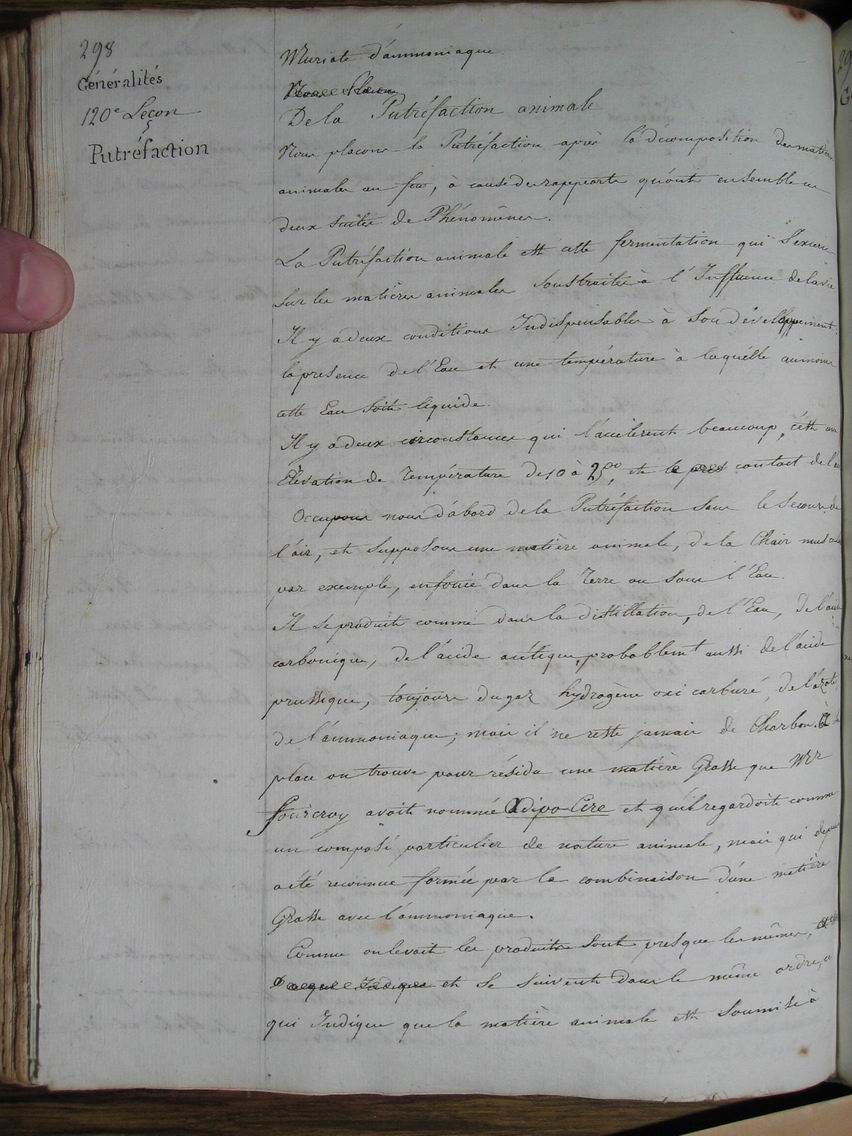 298
Généralités
120e Leçon
Putréfaction
Muriate d'ammoniaque
De la Putréfaction animale
Nous plaçons la Putréfaction après la décomposition des matières
animales au feu, à cause des rapports qu'ont ensemble ces
deux suites de Phénomènes.
La Putréfaction animale est cette fermentation qui s'exerce
sur les matières animales soustraites à l'Influence de la vie
Il y a deux conditions Indispensables à son développement.
la presence de l'Eau et une température à laquelle au moins
cette Eau soit liquide.
Il y a deux circonstances qui l'accélèrent beaucoup, c'est une
Élévation de Température de 10 à 25°, et le contact de l'air
Occupons nous d'abord de la Putréfaction sans le secours de
l'air, et supposons une matière animale, de la Chair musculaire
par exemple, enfouie dans la Terre ou sous l'Eau.
Il se produit comme dans la distillation, de l'Eau, de l'acide
carbonique, de l'acide acétique, probablemt aussi de l'acide
prussique, toujours du gaz hydrogène oxi carburé, de l'azote
de l'ammoniaque; mais il ne reste jamais de Charbon. à
place on trouve pour résidu une matière Grasse que Mr
Fourcroy avoit nommée Adipo-Cire et qu'il regardoit comme
un composé particulier de nature animale, mais qui depuis
a été reconnue formée par la combinaison d'une matière
Grasse avec l'ammoniaque.
Comme on le voit les produits sont presque les mêmes,
et se suivent dans le même ordre, ce
qui Indique que la matière animale est soumise à